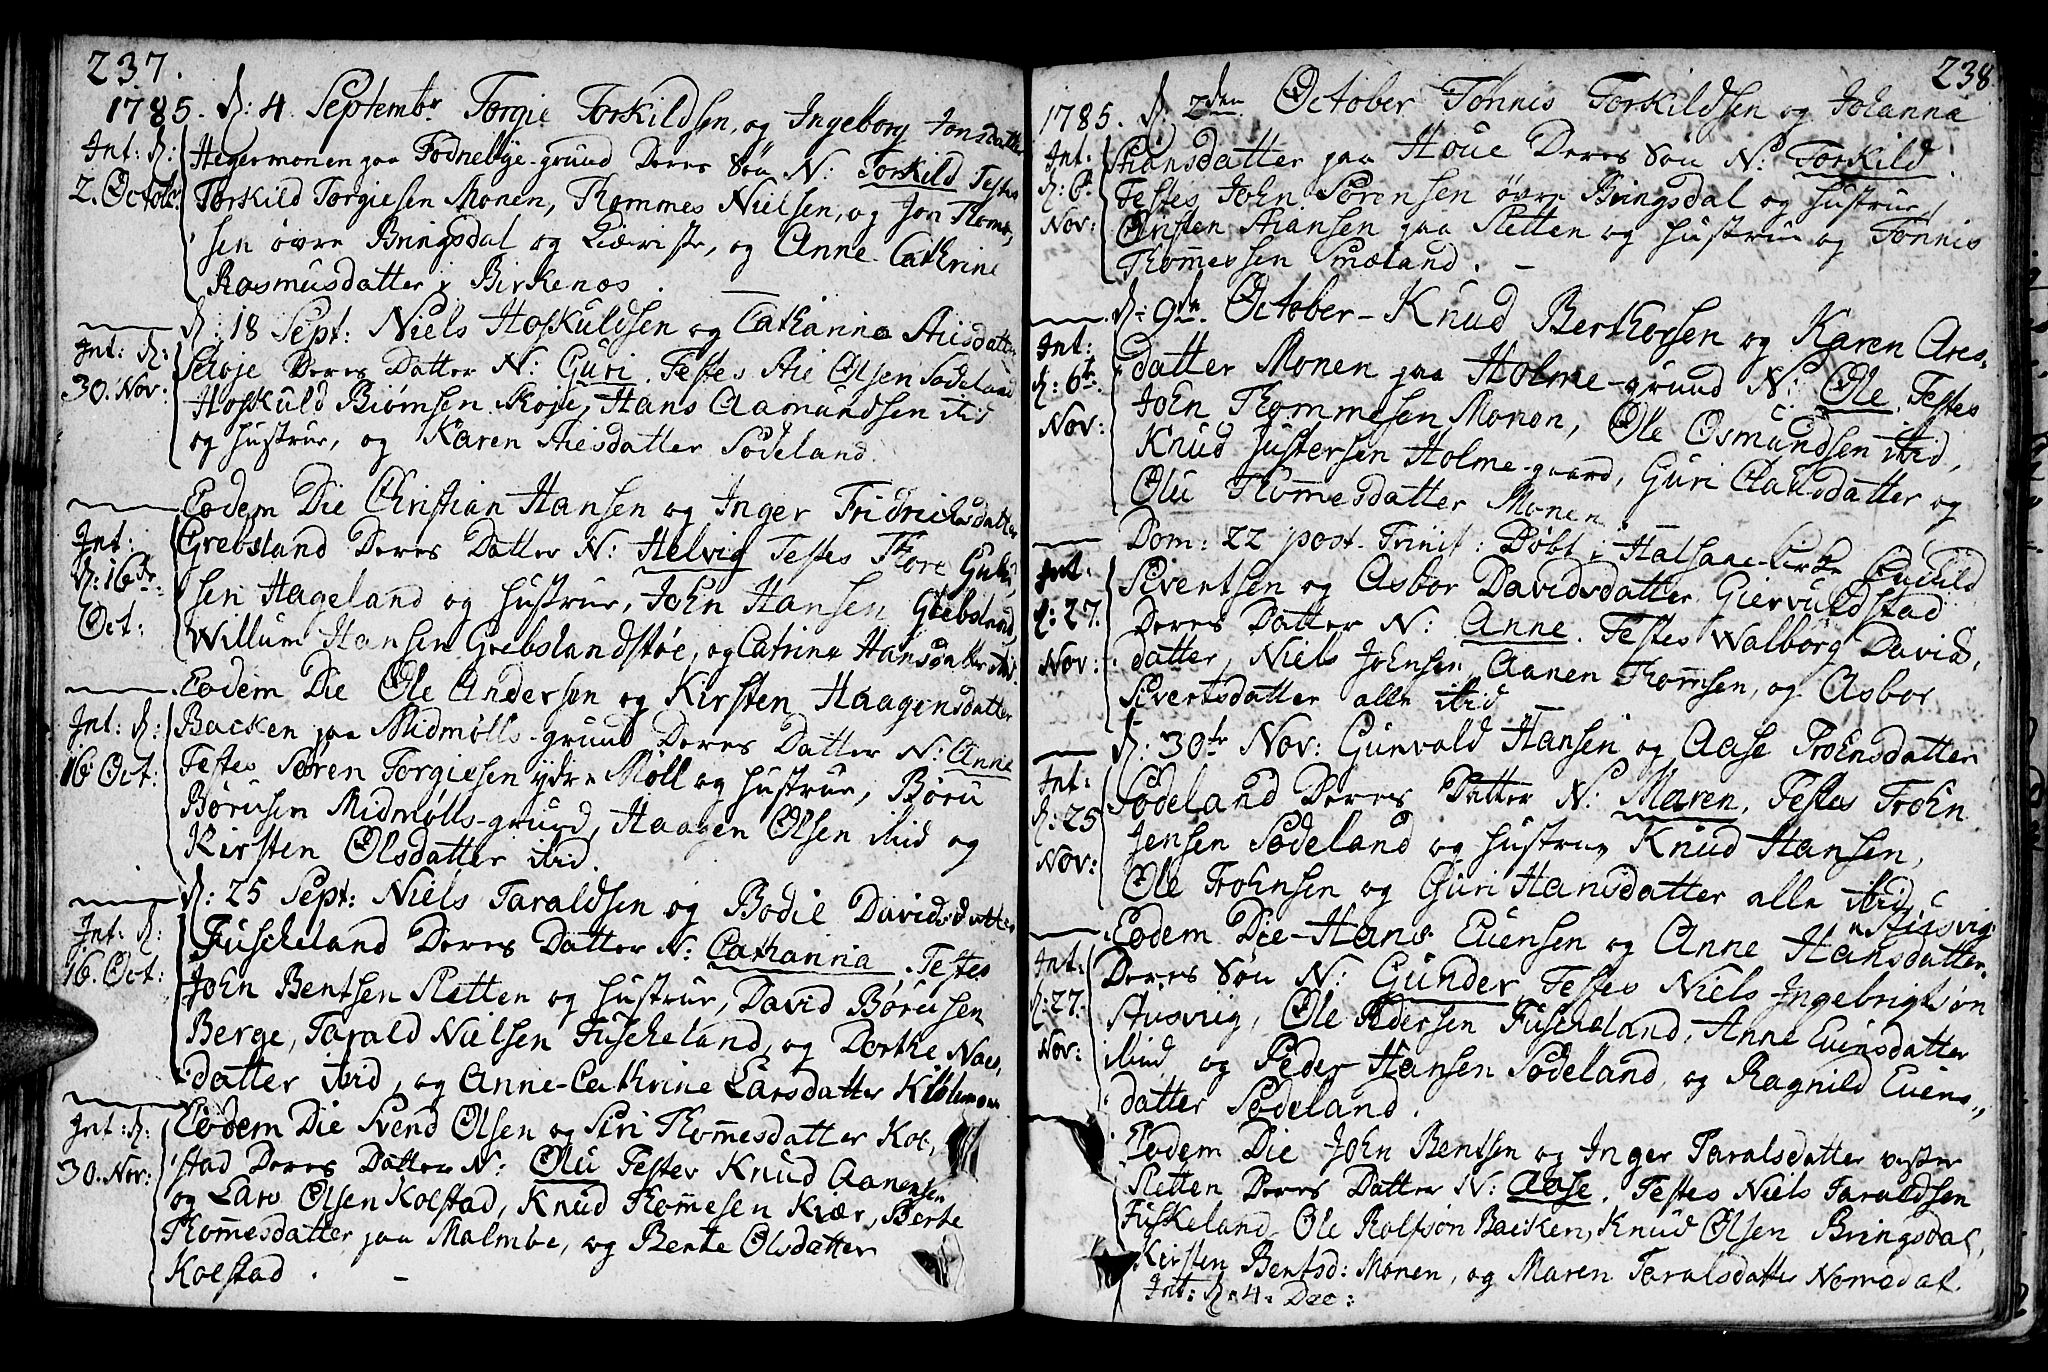 237.
1785. D: 4 Septembr Torgie Torkildsen, og Ingeborg Jonsdatter
Int: D:
2. Octobr:
Hegermonen paa Fodnebye-grund Deres Søn N: Torkild Testes
Torkild Torgiesen Monen, Thommes Nielsen, og Jon Thomæ,
sen øvre Bringsdal og Kiæriste, og Anne Cathrine
Rasmusdatter i Birkenos.
D: 18 Sept: Niels Hoskuldsen og Catharina Aisdatter
Int: D:
30. Nov:
Skøje Deres Datter N: Guri. Testes Aie Olsen Sødeland
Hoskuld Biørnsen Skøje, Hans Aamundsen ibid
og hustrue, og Karen Aiesdatter Sødeland.
Eodem Die Christian Hansen og Inger Fridrichsdatter
Int:
D: 16de
Oct:
Grebsland Deres Datter N: Helvig Testes Thore
sen Hageland og hustrue, John Hansen Grebsland,
Willum Hansen Grebslandstøe, og Catrine Hansdatter ibid.
Eodem Die Ole Andersen og Kirsten Haagensdatter
Int: D:
16 Oct:
Backen paa Midmølls-grund Deres Datter N: Anne
Testes Søren Torgiesen ydre Møll og hustrue, Børu
Børusen Midmølls-grund, Haagen Olsen ibid og
Kirsten Olsdatter ibid.
D: 25 Sept: Niels Taraldsen og Bodil Davidsdatter
Int: D:
16. Oct:
Fuskeland Deres Datter N: Catharina. Testes
John Bentsen Sletten og hustrue, David Børusen
Berge, Tarald Nielsen Fuskeland, og Dorthe Naes,
datter ibid, og Anne-Cathrine Larsdatter
Eodem Die Svend Olsen og Siri Thommesdatter Kol,
Int: D:
30. Nov:
stad Deres Datter N: Olu Testes Knud Aanensen
og Lars Olsen Kolstad, Knud Thommesen Kiær, Berte
Thommesdatter paa Malmbe, og Berte Olsdatter
Kolstad.
238
1785. D: 2den October Tønnis Torkildsen og Johanna
Int:
D: 6te
Nov:
Stiansdatter paa Houe Deres Søn N: Torkild.
Testes John Sørensen øvre Bringsdal og hustrue,
Christen Stiansen paa Sletten og hustrue og Tønnis
Thommesen Smæland.
D: 9de October Knud Berthorsen og Karen Ares,
Int:
D: 6te
Nov:
datter Monen paa Holme-grund N: Ole. Testes
John Thommesen Monen, Ole Osmundsen ibid,
Knud Justersen Holme-gaard, Guri Clausdatter og
Olu Thommesdatter Monen.
Dom: 22 post Trinit: Døbt i Halsaae-Kirke
Int.
D: 27.
Nov:
Sivertsen og Asbor Davidsdatter Giervuldstad
Deres Datter N: Anne. Testes Walborg Davids,
datter, Niels Johnsen, Aanen Thomsen, og Asbor
Sivertsdatter alle ibid
D: 30te Nov: Gunvald Hansen og Aase Trohnsdatter
Int:
D: 25
Nov:
Sødeland Deres Datter N: Maren, Testes Trohn
Jensen Sødeland og hustrue Knud Hansen,
Ole Trohnsen og Guri Hansdatter alle ibid,
Eodem Die Hans Evensen og Anne Hansdatter Stusvig
Int:
D: 27.
Nov:
Deres Søn N: Gunder Testes Niels Ingebrigtsøn
Stusvig, Ole Pedersen Fuskeland, Anne Evensdatter
ibid, og Peder Hansen Sødeland, og Ragnild Evens,,
datter Sødeland.
Eodem Die John Bentsen og Inger Taralsdatter vester
Sletten Deres Datter N: Aase. Testes Niels Taraldsen
Fuskeland, Ole Rolfsøn Backen, Knud Olsen Bringsdal,
Kirsten Bentsd: Monen, og Maren Taralsdatter Nomedal.
Int: D: 4. Dec: